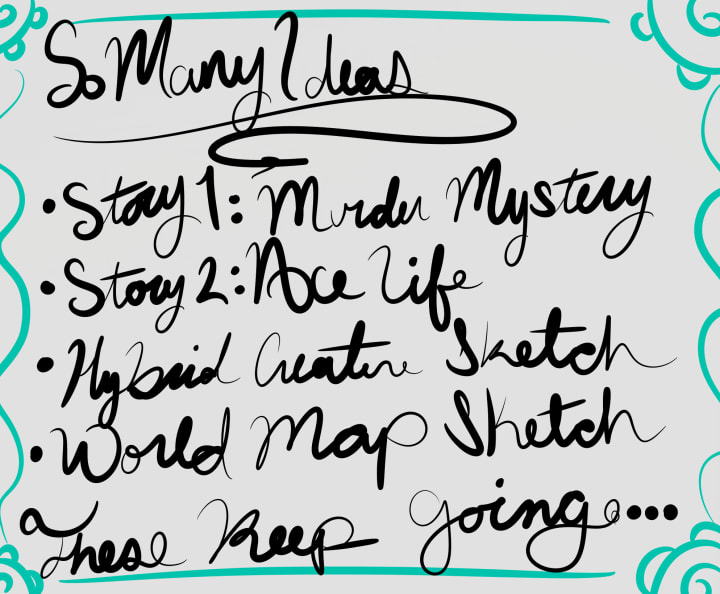 So Many Ideas
• Story 1: Murder Mystery
• Story 2: Ace Life
• Hybrid Creature Sketch
• World Map Sketch
These Keep Going...